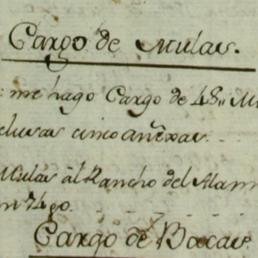 Cargo de Mulas.
me hago Cargo de 48,, M
clusas cinco añexas.
Mulas al Rancho del Alam
Cargo de Bacas